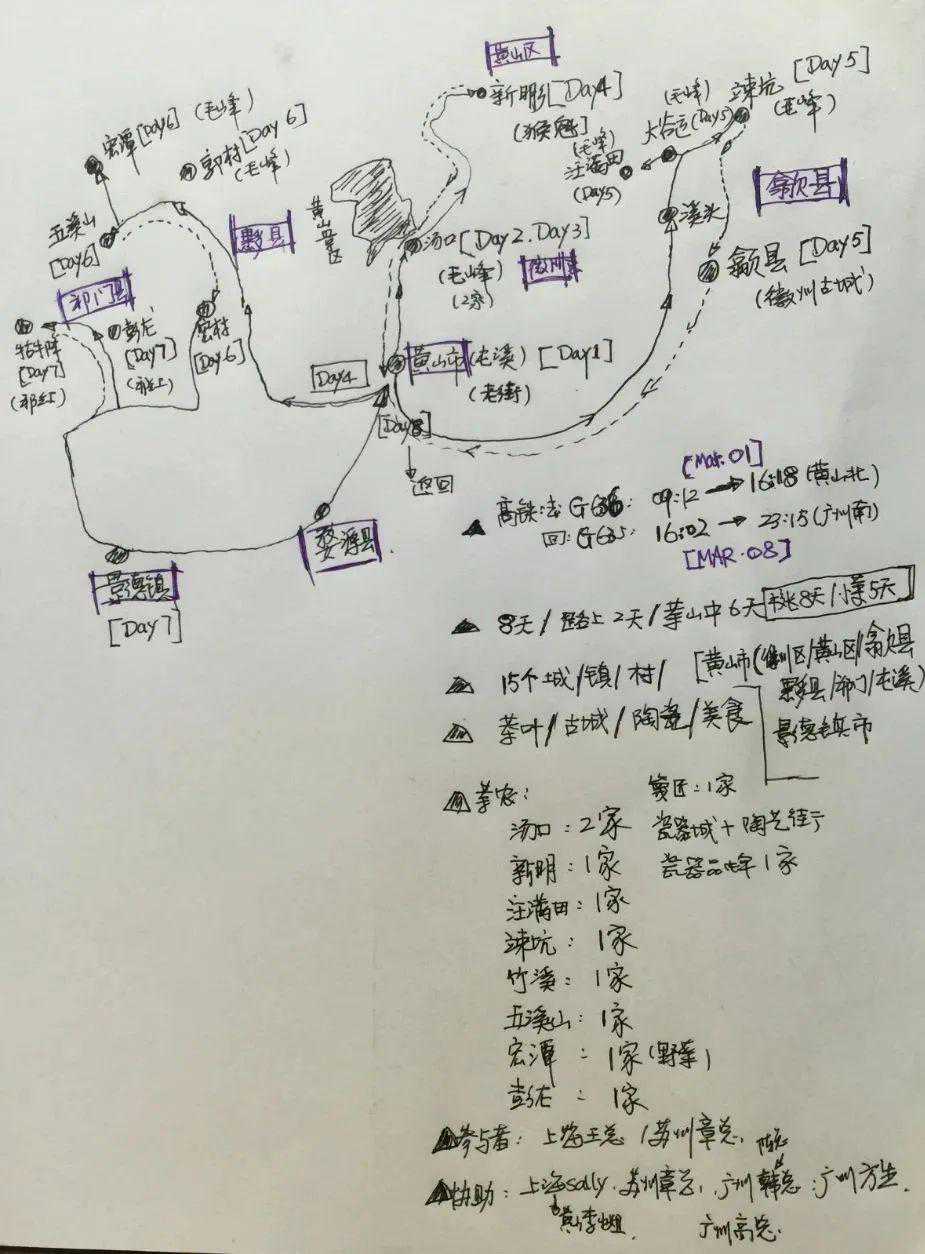 黄山区
新明乡[Day4]
(猴魁)
宏潭[Day6](毛峰)
郭村[Day 6]
(毛峰)
五溪山
[Day6]
黟县
祁门县
黄山景区
汤口[Day2.Day3]
(毛峰)
(2家)
徽州区
(毛峰)
大谷运(Day5)
竦坑[Day5]
(毛峰)
(毛峰)
汪满田
(Day5)
歙县
溪头
歙县[Day5]
(徽州古城)
牯牛降
[Day7]
(祁红)
彭龙
[Day7]
(祁红)
宏村
[Day6]
Day4
黄山市(屯溪)[Day1]
(老街)
[Day8]
返回
婺源县
景德镇
[Day7]
[Mar.01]
高铁:去G636: 09:12→16:18(黄山北)
回:G635: 16:02→23:15(广州南)
[MAR.08]
8天/路上2天/茶山中6天
15个城/镇/村/[黄山市(徽州区/黄山区/歙县
黟县/祁门/屯溪)
茶叶/古城/陶瓷/美食
景德镇市
茶农:
窑匠:1家
汤口:2家
瓷器城+陶艺街
新明:1家
瓷器品牌1家
汪满田:1家
竦坑:1家
竹溪:1家
五溪山:1家
宏潭:1家(野茶)
彭龙:1家
参与者:上海王总/苏州章总.
协助:上海sally.苏州章总.广州韩总.广州方生.
广州高总.